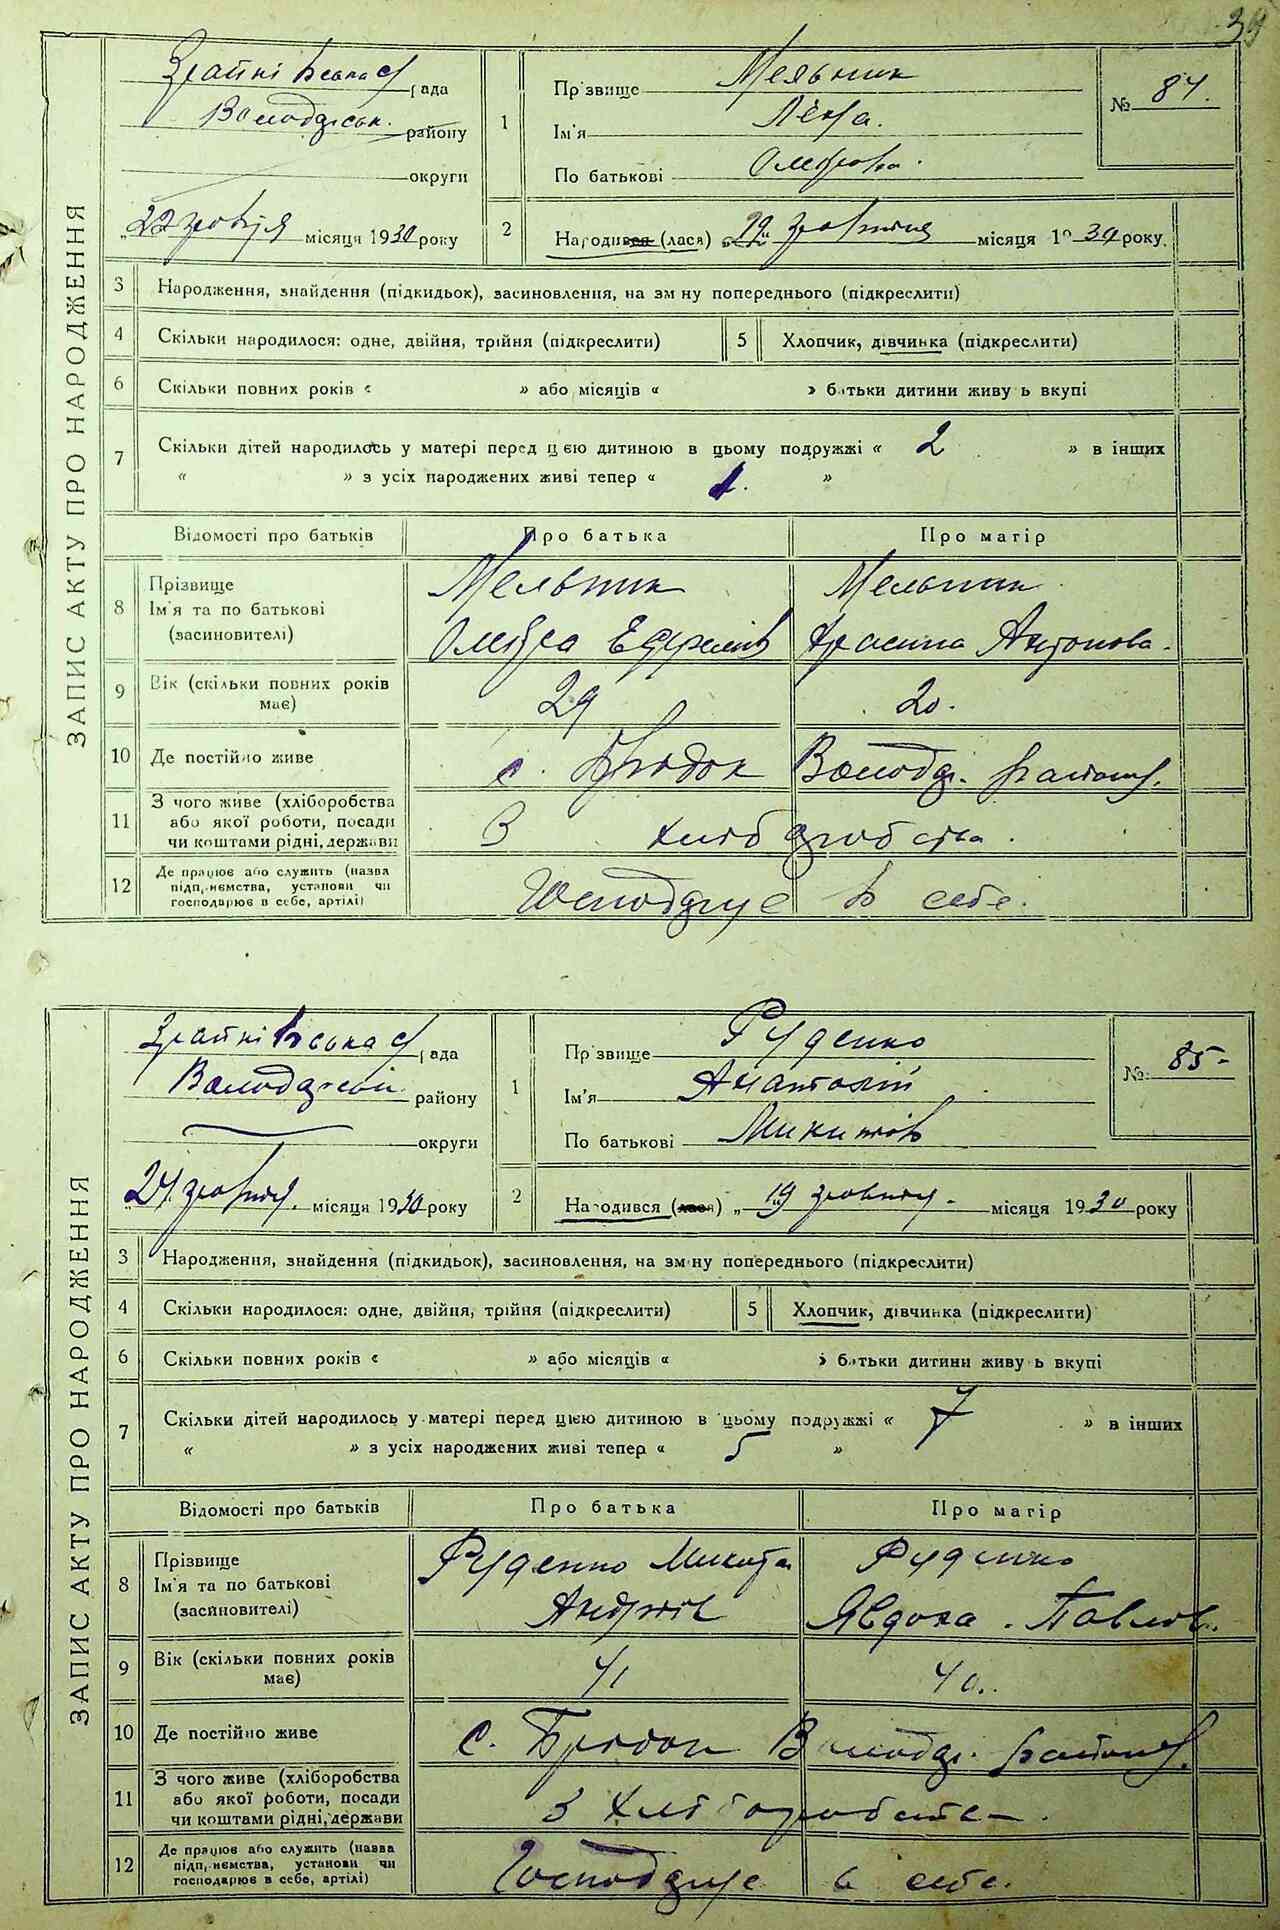 39
ЗАПИС АКТУ ПРО НАРОДЖЕННЯ
рада
Володарськ. району
округи
22 жовтня місяця 1930 року
1 Прізвище Мельник
Ім'я Лєна.
По батькові
№ 84.
2 Народився (лася) „19" жовтня місяця 1930 року.
3 Народження, знайдення (підкидьок), засиновлення, на зміну попереднього (підкреслити)
4 Скільки народилося: одне, двійня, трійня (підкреслити) 5 Хлопчик, дівчинка (підкреслити)
6 Скільки повних років « » або місяців « » батьки дитини живуть вкупі
7 Скільки дітей народилось у матері перед цією дитиною в цьому подружжі « 2 » в інших
« » з усіх народжених живі тепер « 1. »
Відомості про батьків Про батька Про матір
8 Прізвище
Ім'я та по батькові
(засиновителі)
Мельник Мельник
Антонова.
9 Вік (скільки повних років
має)
29 20.
10 Де постійно живе
с. Володар. району.
11 З чого живе (хліборобства
або якої роботи, посади
чи коштами рідні, держави
З хліборобства.
12 Де працює або служить (назва
підприємства, установи чи
господарює в себе, артілі)
Господарує в себе.
ЗАПИС АКТУ ПРО НАРОДЖЕННЯ
рада
району
округи
24 жовтня місяця 1930 року
1 Прізвище Руденко
Ім'я Анатолій
По батькові Микитов
№ 85-
2 Народився (лася) „19" жовтня місяця 1930 року
3 Народження, знайдення (підкидьок), засиновлення, на зміну попереднього (підкреслити)
4 Скільки народилося: одне, двійня, трійня (підкреслити) 5 Хлопчик, дівчинка (підкреслити)
6 Скільки повних років « » або місяців « » батьки дитини живуть вкупі
7 Скільки дітей народилось у матері перед цією дитиною в цьому подружжі « 7 » в інших
« » з усіх народжених живі тепер « 5 »
Відомості про батьків Про батька Про матір
8 Прізвище
Ім'я та по батькові
(засиновителі)
Руденко Микита Руденко
Андріїв Явдоха Павлов.
9 Вік (скільки повних років
має)
41 40.
10 Де постійно живе
с. Володар. району.
11 З чого живе (хліборобства
або якої роботи, посади
чи коштами рідні, держави
З хліборобства.
12 Де працює або служить (назва
підприємства, установи чи
господарює в себе, артілі)
Господарує в себе.